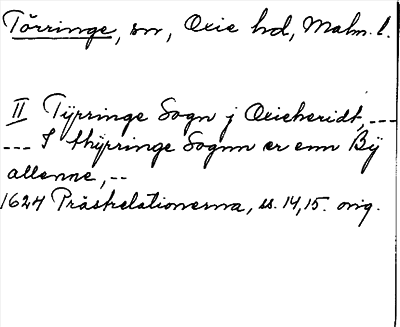 Törringe, sn, Oxie hd, Malm. l.
II Typringe Sogn j Oxieheridt, ---
--- I thÿrringe Sognn er enn Bÿ
allenne, --
1624 Prästrelationerna, s. 14, 15. orig.